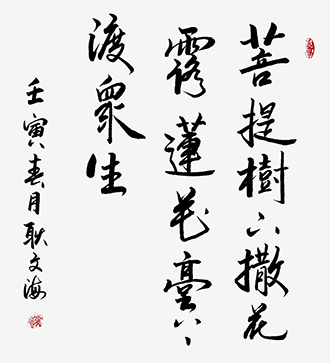 菩提樹下撒花
露蓮花臺上
渡眾生
壬寅春月耿文海